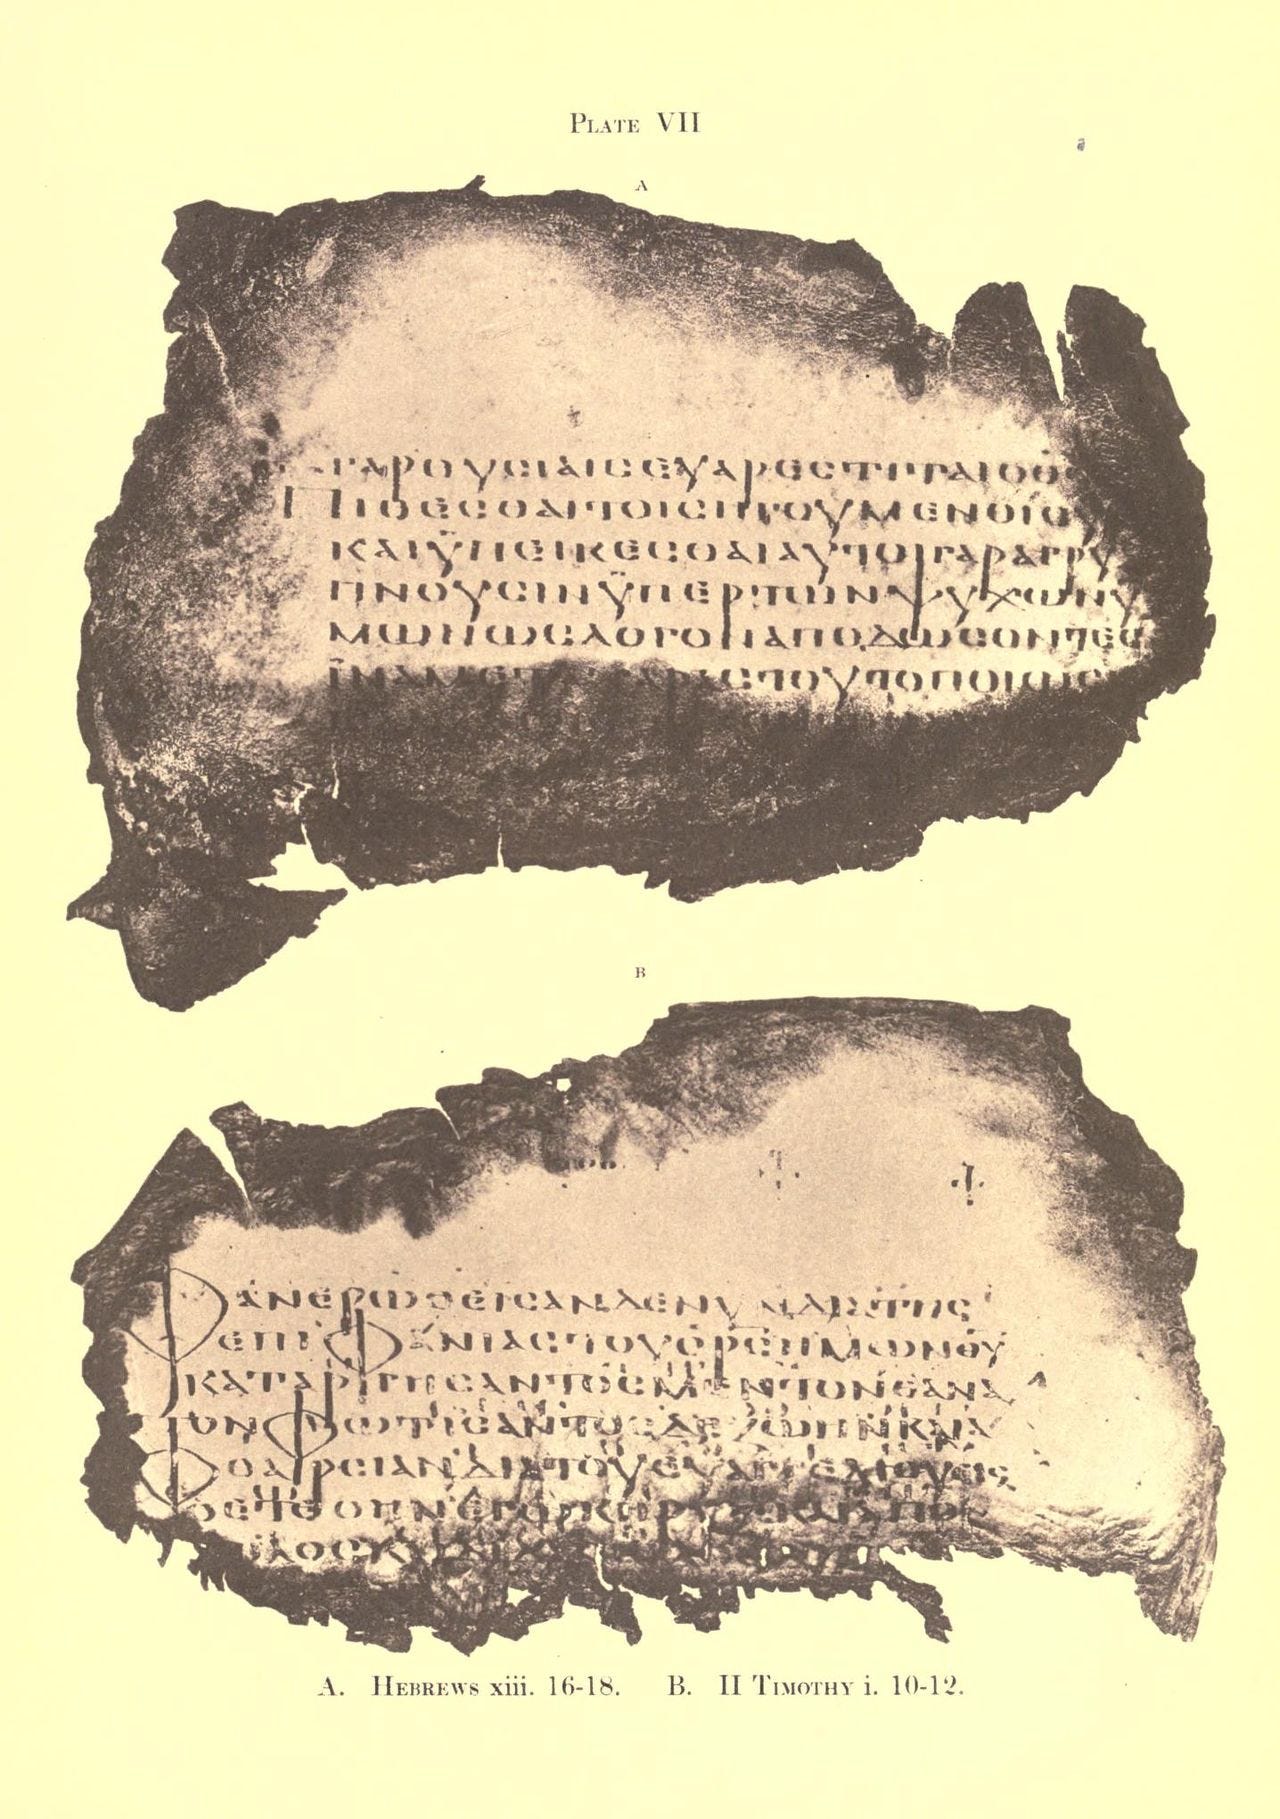 PLATE VII
A
ΓΑΡΟΥCΙΑΙCΕΥΑΡΕCΤΙΤΑΙΟΘC
ΠΙΘΕCΘΑΙΤΟΙCΗΓΟΥΜΕΝΟΙC
ΚΑΙΫΠΕΙΚΕCΘΑΙΑΥΤΟΙΓΑΡΑΓΡΥ
ΠΝΟΥCΙΝΫΠΕΡΤΩΝΨΥΧΩΝΥ
ΜΩΝΩCΛΟΓΟΝΑΠΟΔΩCΟΝΤΕC
ΤΟΥΤΟΠΟΙΩCΙ
B
ΦΑΝΕΡΩΘΕΙCΑΝΔΕΝΥΝΔΙΑΤΗC
ΕΠΙΦΑΝΙΑCΤΟΥCΡCΗΜΩΝΘΥ
ΚΑΤΑΡΓΗCΑΝΤΟCΜΕΝΤΟΝΘΑΝΑ
ΤΟΝΦΩΤΙCΑΝΤΟCΔΕΖΩΗΝΚΑΙΑ
ΦΘΑΡCΙΑΝΔΙΑΤΟΥΕΥΑΓΓΕΛΙΟΥΕΙC
ΟΕΤΕΘΗΝΕΓΩΚΗΡΥΞΚΑΙΑΠΟ
A. HEBREWS xiii. 16-18. B. II TIMOTHY i. 10-12.